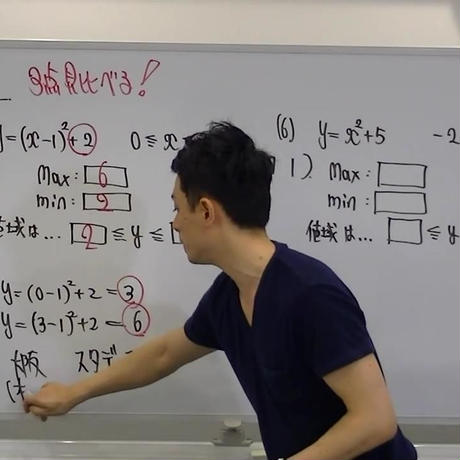 3点見比べる!
y=(x-1)²+2 0≦x
Max: 6
min: 2
値域は… 2 ≦y≦
y=(0-1)²+2=3
y=(3-1)²+2=6
スタデ
(6) y=x²+5 -2
Max:
min:
値域は… ≦y